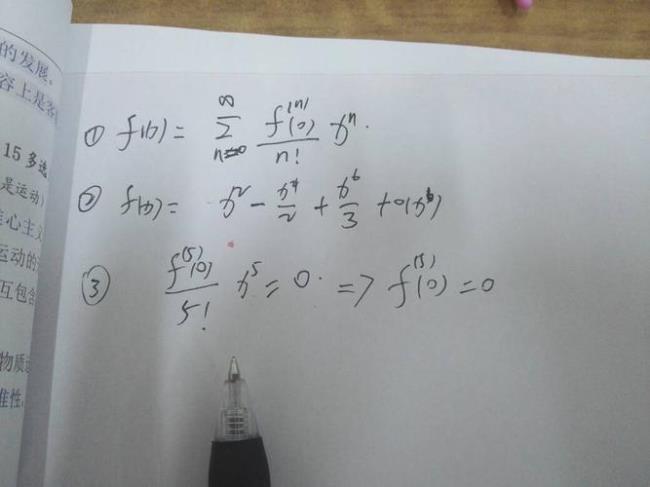 的发展.
容上是客
15 多选
是运动)
心主义
运动的
互包含
物质
准性.
① f(x) = ∞ Σ n=0 f⁽ⁿ⁾(0) / n! xⁿ.
② f(x) = x² - x⁴/2 + x⁶/3 + o(x⁶)
③ f⁽⁵⁾(0) / 5! x⁵ = 0. => f⁽⁵⁾(0) = 0